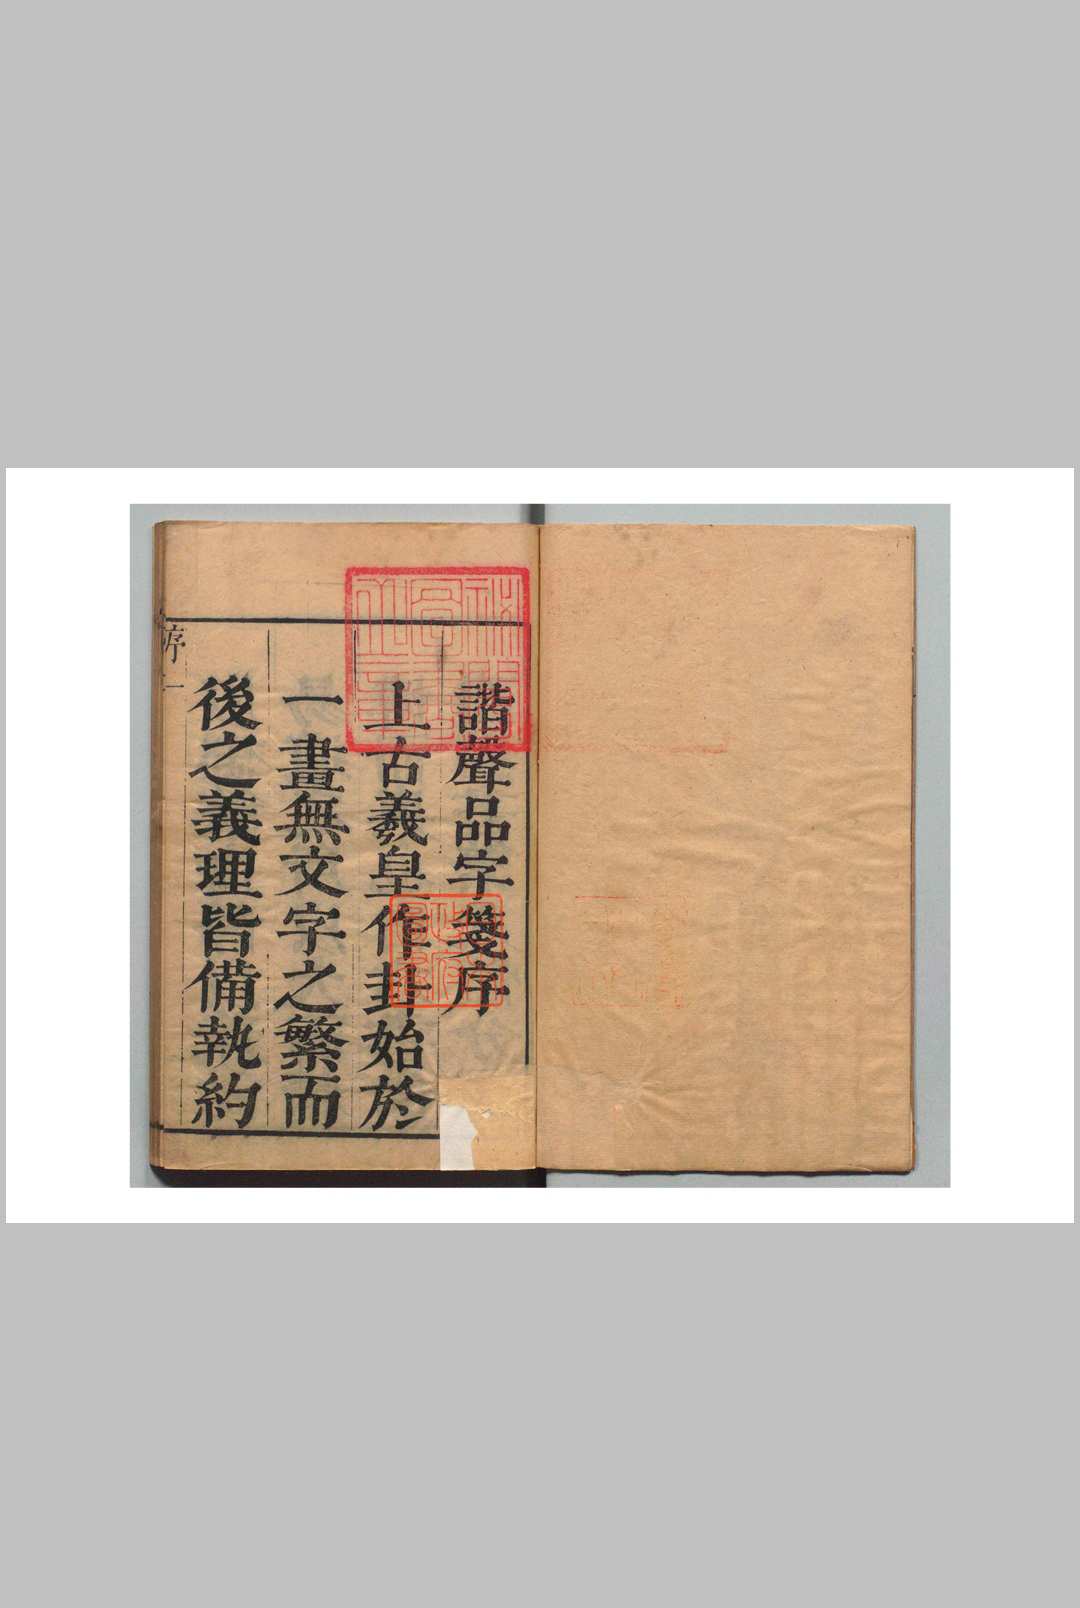 諧聲品字箋序
上古羲皇作卦始於
一畫無文字之繁而
後之義理皆備執約
序 一